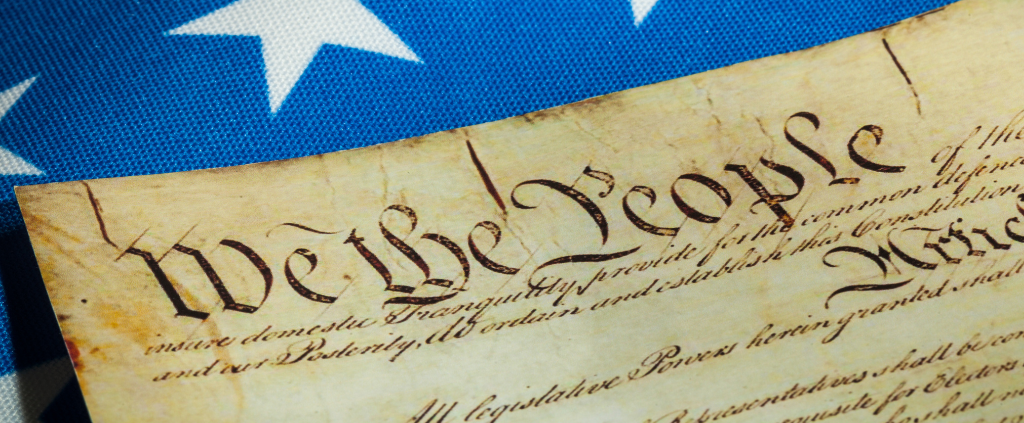 We the People of the
insure domestic Tranquility, provide for the common defence
and our Posterity, do ordain and establish this Constitution
Article
All legislative Powers herein granted shall
Representatives shall be
for Electors
shall